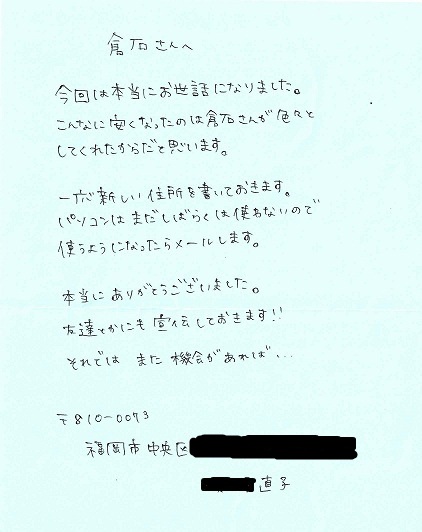 倉石さんへ
今回は本当にお世話になりました。
こんなに安くなったのは倉石さんが色々と
してくれたからだと思います。
一応新しい住所を書いておきます。
パソコンはまだしばらくは使わないので
使うようになったらメールします。
本当にありがとうございました。
友達とかにも宣伝しておきます!!
それでは また機会があれば...
〒810-0073
福岡市中央区
直子